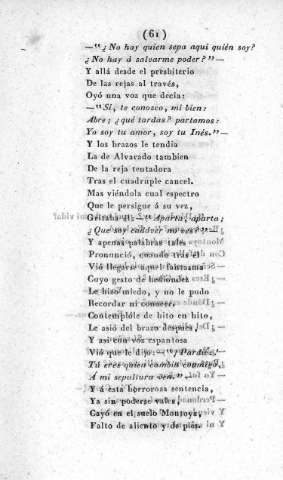 (61)
—"¿No hay quien sepa aquí quién soy?
¿No hay á salvarme poder?"—
Y allá desde el presbiterio
De las rejas al través,
Oyó una voz que decia:
—"Sí, te conozco, mi bien:
Abre; ¿qué tardas? partamos:
Yo soy tu amor, soy tu Inés."—
Y los brazos le tendia
La de Alvarado tambien
De la reja tentadora
Tras el cuádruple cancel.
Mas viéndola cual espectro
Que le persigue á su vez,
Gritábala:—"Aparta, aparta:
¿Que soy cadáver no ves?"—
Y apenas palabras tales
Pronunció, cuando tras él
Vió llegarse aquel fantasma
Cuyo gesto de hediondez
Le hizo miedo, y no le pudo
Recordar ni conocer.
Contemplóle de hito en hito,
Le asió del brazo después
Y así con voz espantosa
Vió que le dijo:—"¡Pardiez!
Tú eres quien cambia conmigo,
Á mi sepultura ven."—
Y á esta horrorosa sentencia,
Ya sin poderse valer,
Cayó en el suelo Montoya,
Falto de aliento y de piés.